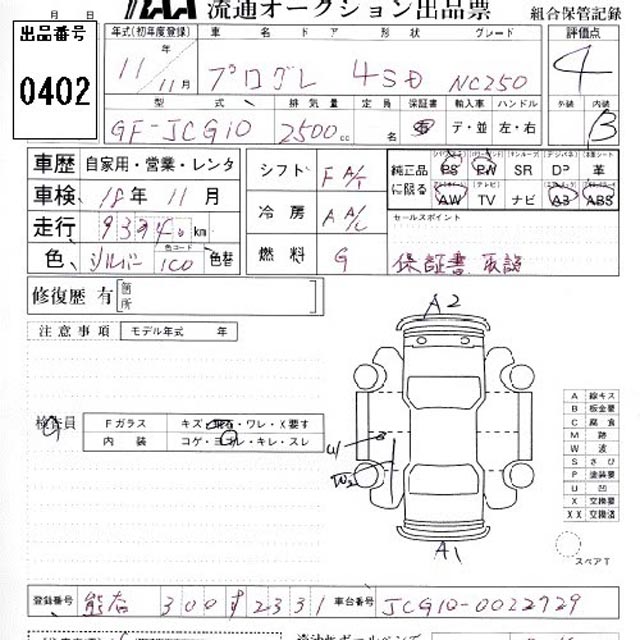 月 日 流通オークション出品票 組合保管記録
出品番号
0402
年式(初年度登録) 車 名 ドア 形状 グレード 評価点
11年 11月 プログレ 4SD NC250 4
型 式 排気量 定員 保証書 輸入車 ハンドル 外装 内装
GF-JCG10 2500cc 名 デ・並 左・右 B
車歴 自家用・営業・レンタ
車検 18年 11月
走行 km
色 シルバー 1C0 色替
色コード
シフト F A/T
冷房 A A/C
燃料 G
純正品に限る PS PW SR DP 革
AW TV ナビ AB ABS
セールスポイント
保証書 取説
修復歴 有 箇所
注意事項 モデル年式 年
検査員
Fガラス キズ・ ・ワレ・X要す
内装 コゲ・ヨゴレ・キレ・スレ
A2
U
W2
A1
A 線キズ
B 板金要
C 腐食
M 跡
W 波
S さび
P 塗装要
U 凹
X 交換要
XX 交換済
スペアT
登録番号 300 2331 車台番号 JCG10-0022729